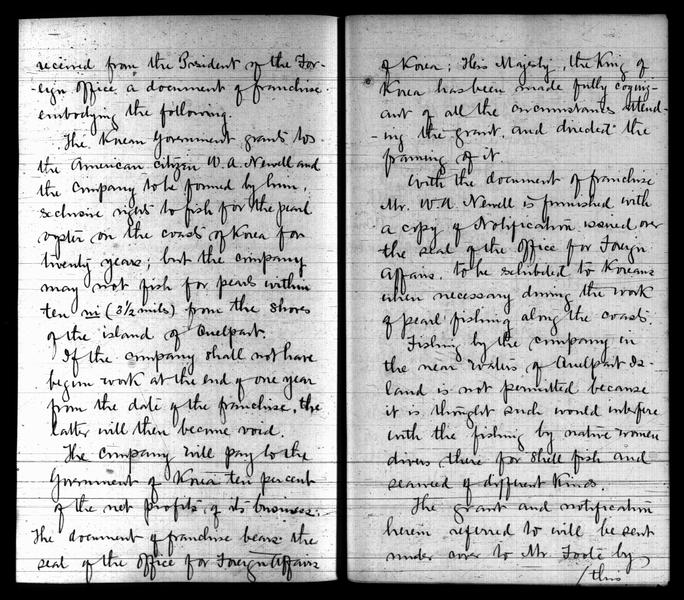 received from the President of the For-
eign Office a document of franchise
embodying the following.
The Korean Government grants to
the American citizen W. A. Newell and
the Company to be formed by him,
exclusive rights to fish for the pearl
oyster on the coasts of Korea for
twenty years; but the company
may not fish for pearls within
ten ni (3½ miles) from the shores
of the island of Quelpart.
If the company shall not have
begun work at the end of one year
from the date of the franchise, the
latter will then become void.
The company will pay to the
Government of Korea ten per cent
of the net profits of its business.
The document of franchise bears the
seal of the Office for Foreign Affairs
of Korea; His Majesty, the King of
Korea has been made fully cogniz-
ant of all the circumstances attend-
-ing the grant, and directed the
framing of it.
With the document of franchise
Mr. W. A. Newell is furnished with
a copy of Notification issued over
the seal of the Office for Foreign
Affairs, to be exhibited to Koreans
when necessary during the work
of pearl fishing along the coasts.
Fishing by the company in
the near waters of Quelpart Is-
land is not permitted because
it is thought such would interfere
with the fishing by native women
divers there for shell fish and
seaweed of different kinds.
The grant and notification
herein referred to will be sent
under cover to Mr. Foote by
/this